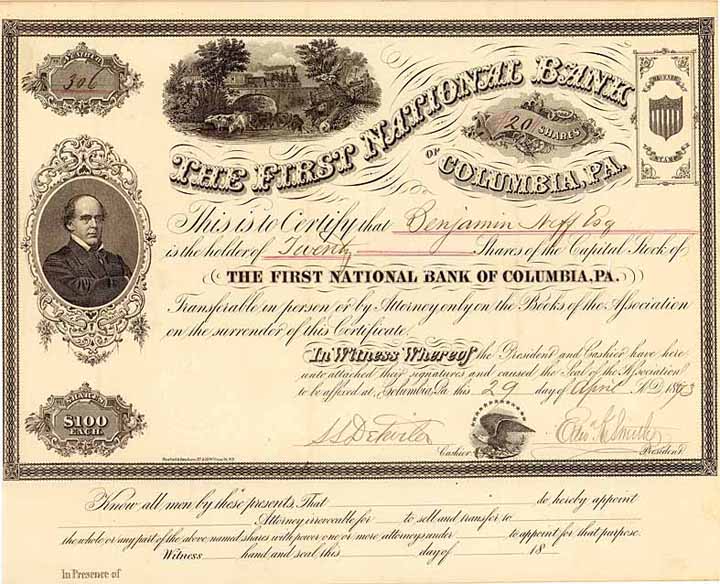 NUMBER
306
THE FIRST NATIONAL BANK
20 SHARES
OF
COLUMBIA, PA.
This is to Certify that Benjamin Neff Esq
is the holder of Twenty Shares of the Capital Stock of
THE FIRST NATIONAL BANK OF COLUMBIA, PA.
Transferable in person or by Attorney only on the Books of the Association
on the surrender of this Certificate.
In Witness Whereof the President and Cashier have here
unto attached their signatures and caused the Seal of the Association
to be affixed at Columbia, Pa this 29 day of April A.D. 1873
SHARES
$100
EACH
S S Detwiler
Cashier
President
Know all men by these presents, That do hereby appoint
Attorney irrevocable for to sell and transfer to
the whole or any part of the above named shares with power one or more attorneys under to appoint for that purpose.
Witness hand and seal this day of 18
In Presence of